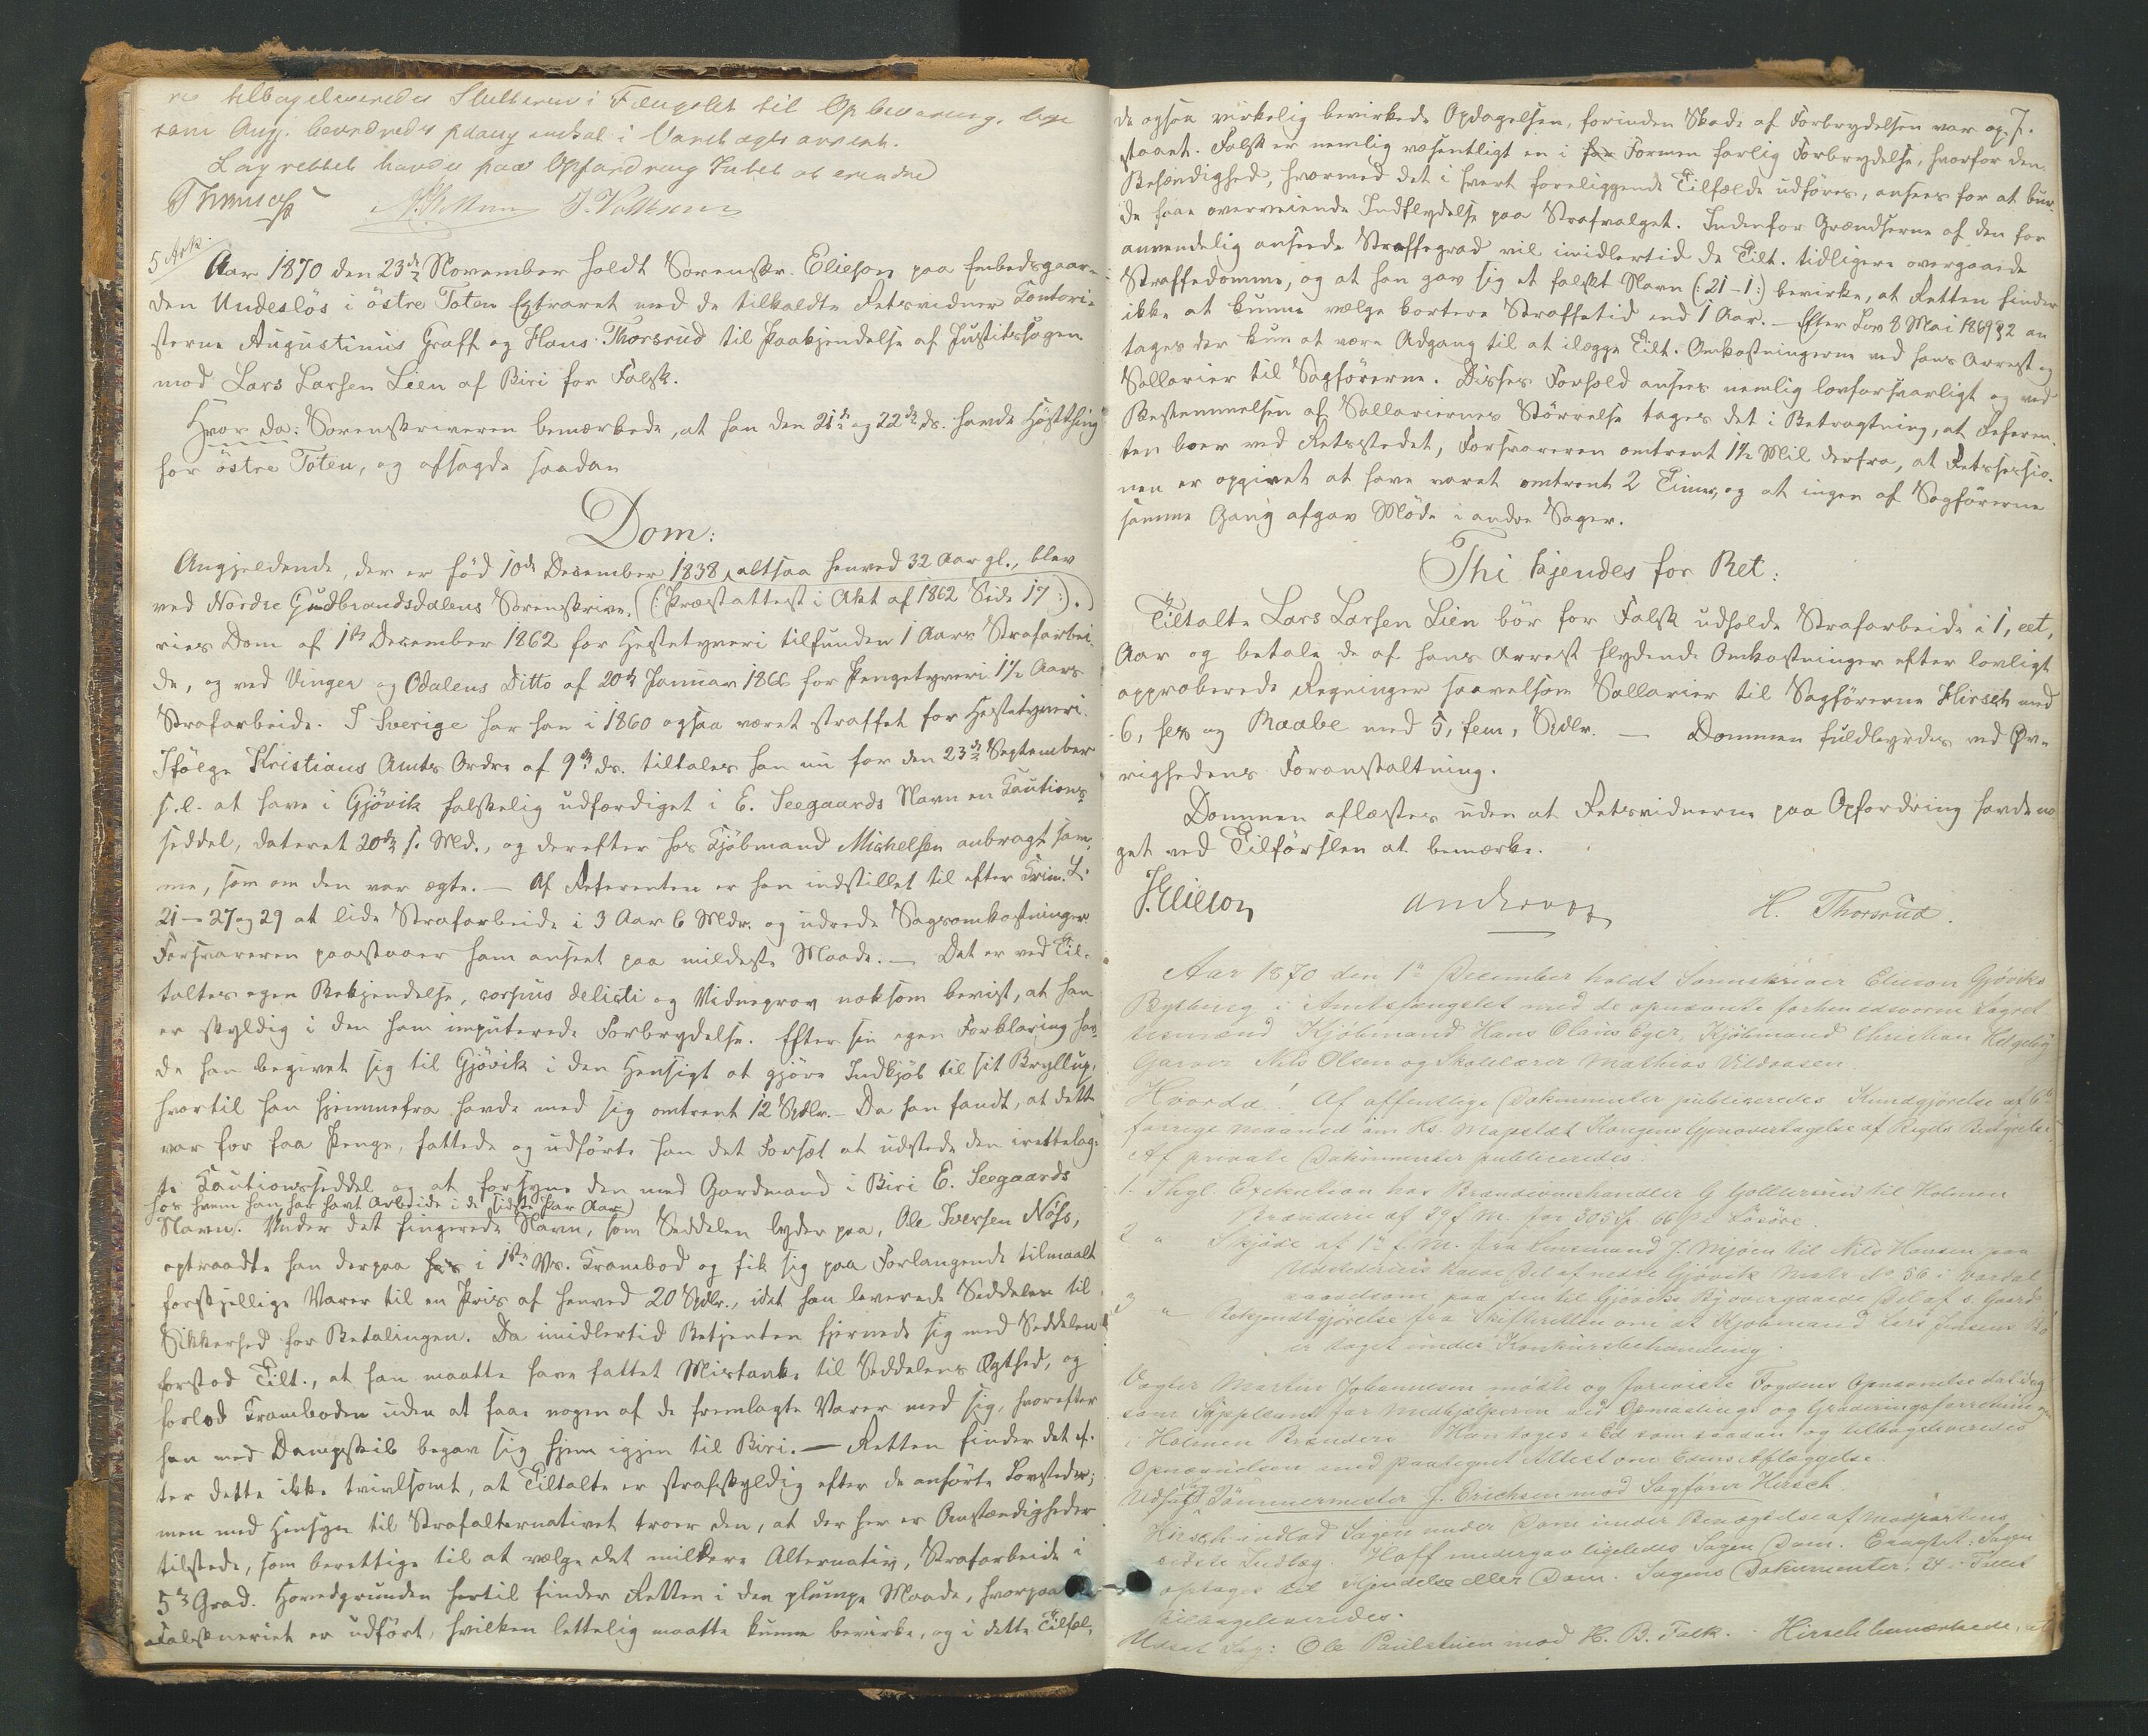 tilbageleveredes Slutteren i Fængslet til Opbevaring.
som Ang. beordredes paany indsat i Varetægtsarrest.
Lagrettet havde paa Opfordring Intet at erindre
5 Ark.
Aar 1870 den 23de November holdt Sorenskr. Elieson paa Embedsgaar-
den Undeslös i östre Toten Extraret med de tilkaldte Retsvidner Kontori-
sterne Augustinus Graff og Hans Thorsrud til Paakjendelse af Justitssagen
mod Lars Larsen Lien af Biri for Falsk.
Hvor da: Sorenskriveren bemærkede, at han den 21de og 22de ds. havde Höstthing
for östre Toten, og afsagde saadan
Dom:
Angjeldende, der er fød 10de December 1838, altsaa henved 32 Aar gl., blev
ved Nordre Gudbrandsdalens Sorenskrive- (: Præstattest i Akt af 1862 Side 17 :).
ries Dom af 1ste December 1862 for Hestetyveri tilfunden 1 Aars Strafarbei-
de, og ved Vinger og Odalens Ditto af 20de Januar 1866 for Pengetyveri 1½ Aars
Strafarbeide. I Sverige har han i 1860 ogsaa været straffet for Hestetyveri.
Ifölge Kristians Amts Ordre af 9de ds. tiltales han nu for den 23de September
s.l. at have i Gjövik falskelig udfærdiget i E. Seegaards Navn en Kautions-
seddel, dateret 20de s. Md., og derefter hos Kjöbmand Michelsen anbragt sam-
me, som om den var ægte. — Af Referenten er han indstillet til efter Krim. L.
21–27 og 29 at lide Strafarbeide i 3 Aar 6 Mdr. og udrede Sagsomkostninger.
Forsvareren paastaaer ham anseet paa mildeste Maade. — Det er ved Til-
taltes egen Bekjendelse, corpus delicti og Vidneprov noksom bevist, at han
er skyldig i den ham imputerede Forbrydelse. Efter sin egen Forklaring hav-
de han begivet sig til Gjövik i den Hensigt at gjöre Indkjöb til sit Bryllup,
hvortil han hjemmefra havde med sig omtrent 12 Spdlr. — Da han fandt, at dette
var for faa Penge, fattede og udførte han det Forsæt at udstede den irettelag-
te Kautionsseddel og at forsyne den med Gardmand i Biri E. Seegaards
hos hvem han har havt Arbeide i de sidste Par Aar)
Navn. Under det fingerede Navn, som Seddelen lyder paa, Ole Iversen Nöss,
optraadte han derpaa hos i 1ste Vs. Krambod og fik sig paa Forlangende tilmaalt
forskjellige Varer til en Pris af henved 20 Spdlr., idet han leverede Seddelen til
Sikkerhed for Betalingen. Da imidlertid Betjenten fjernede sig med Seddelen
forstod Tilt., at han maatte have fattet Mistanke til Seddelens Ægthed, og
forlod Kramboden uden at faae nogen af de fremlagte Varer med sig, hvorefter
han med Dampskib begav sig hjem igjen til Biri. — Retten finder det ef-
ter dette ikke tvivlsomt, at Tiltalte er strafskyldig efter de anförte Lovsteder;
men med Hensyn til Strafalternativet troer den, at der her er Omstændigheder
tilstede, som berettige til at vælge det mildere Alternativ, Strafarbeide i
5te Grad. Hovedgrunden hertil finder Retten i den plumpe Maade, hvorpaa
Falskneriet er udført, hvilken lettelig maatte kunne bevirke, og i dette Tilfæl-
7.
de ogsaa virkelig bevirkede Opdagelsen, forinden Skade af Forbrydelsen var op-
staaet. Falsk er nemlig væsentligt en i for Formen farlig Forbrydelse, hvorfor den
Behændighed, hvormed det i hvert foreliggende Tilfælde udföres, ansees for at bur-
de faae overveiende Indflydelse paa Strafvalget. Indenfor Grændserne af den for
anvendelig ansete Straffegrad vil imidlertid de Tilt. tidligere overgaaede
Straffedomme, og at han gav sig et falskt Navn (: 21 – 1 :) bevirke, at Retten finder
ikke at kunne vælge kortere Straffetid end 1 Aar. — Efter Lov 8 Mai 1869 § 2 an
tages der kun at være Adgang til at ilægge Tilt. Omkostningerne ved hans Arrest og
Sallarier til Sagförerne. Disses Forhold ansees nemlig lovforsvarligt og ved
Bestemmelsen af Sallariernes Störrelse tages det i Betragtning, at Referen-
ten boer ved Retsstedet, Forsvareren omtrent 1½ Mil derfra, at Retssessio-
nen er opgivet at have varet omtrent 2 Timer, og at ingen af Sagförerne
samme Gang afgav Möde i andre Sager.
Thi kjendes for Ret:
Tiltalte Lars Larsen Lien bör for Falsk udholde Strafarbeide i 1, eet,
Aar og betale de af hans Arrest flydende Omkostninger efter lovligt
approberede Regninger saavelsom Sallarier til Sagförerne Hirsch med
6, sex og Raabe med 5, fem, Spdlr. — Dommen fuldbyrdes ved Øv-
righedens Foranstaltning.
Dommen oplæstes uden at Retsvidnerne paa Opfordring havde no
get ved Tilførslen at bemærke.
J. Elieson H. Thorsrud.
Aar 1870 den 1ste December holdt Sorenskriver Elieson Gjöviks
Bything i Amtsfængslet med de opnævnte forhen edsvorne Lagret
tesmænd Kjöbmand Hans Claus Eger, Kjöbmand Christian Helgeby
Garver Nils Olsen og Skolelærer Mathias Vildaasen.
Hvorda! Af offentlige Dokumenter publiceredes Kundgjörelse af 6te
forrige Maaned om Hs. Majestæt Kongens Gjenovertagelse af Rigets Bestyrelse.
Af private Dokumenter publiceredes
1. Thgl. Exekution hos Brændevinshandler G. til Holmen
Brænderi af 29 f. M. for 305 Sp. 66 s. i Lösöre.
2 " Skjöde af 1ste f. M. fra Lensmand J. Mjöen til Nils Hansen paa
Udstederens Del af nedre Gjövik Matr. No 56 i Vardal
saavelsom paa den til Gjöviks By overgaaede Del af s. Gaard
3 " Bekjendtgjörelse fra Skifteretten om at Kjöbmand Lars Jensens Bo
er taget under Konkursbehandling.
Vægter Martin Johannesen mödte og foreviste Fogdens Opnævnelse dat. idag
som Suppleant for Medhjælperen ved Opmaalings og Graderingsforretninger
i Holmen Brænderi. Han toges i Ed som saadan og tilbageleveredes
Opnævnelsen med paategnet Attest om Edens Aflæggelse.
Udsat Sag Tömmermester J. Erichsen mod Sagförer Hirsch.
Hirsch indlod Sagen under Dom under Benægtelse af Modpartens
sidste Indlæg. Hoff nedergav ligeledes Sagen Dom. Eragtet: Sagen
optages til Kjendelse eller Dom. Sagens Dokumenter, 24 i Tallet
tilbageleveredes.
Udsat Sag: Ole Paulstuen mod H. B. Falk. Hirsch bemærkede, at